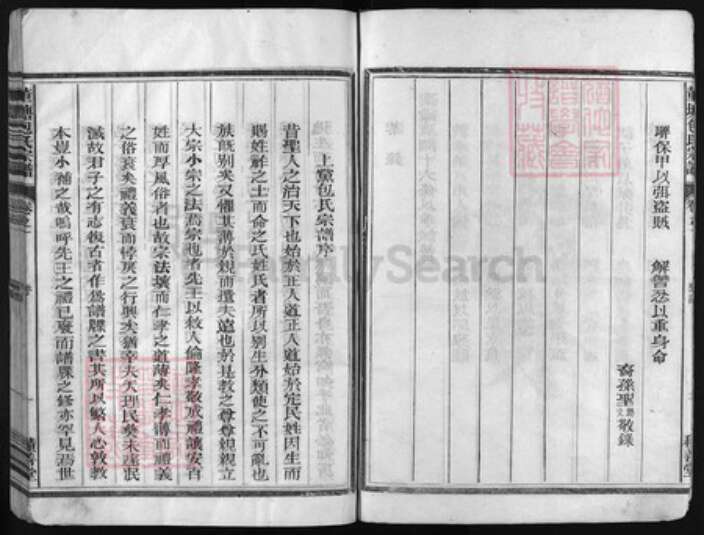 聯保甲以弭盜賊　解讐忿以重身命
裔孫聖
敬錄
上黨包氏宗譜序
昔聖人之治天下也始於正人道正人道始於定民姓因生而
賜姓胙之土而命之氏姓氏者所以別生分類使之不可亂也
族旣別矣又懼其薄於親而遺夫遠也於是教之尊尊親親立
大宗小宗之法焉宗也者先王以敘人倫隆孝敬成禮讓安百
姓而厚風俗者也故宗法壞而仁孝之道薄矣仁孝薄而禮義
之俗衰矣禮義衰而悖戾之行興矣猶幸夫天理民彝未遽泯
滅故君子之有志復古者作為譜牒之書其所以繫人心敦教
本豈小補之哉嗚呼先王之禮已廢而譜牒之修亦罕見焉世
包氏宗譜
FamilySearch